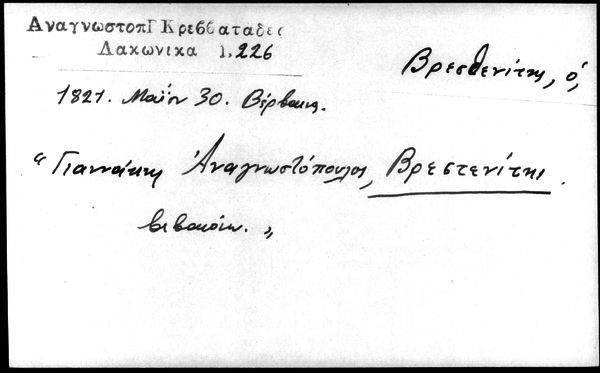 ΑναγνωστοπΓ Κρεββαταδες
Λακωνικα 1,226
Βρεσθενίτης, ὁ,
1821. Μαΐου 30. Βέρβαινα.
“Γιαννάκης Ἀναγνωστόπουλος, Βρεστενίτης
βεβαιόνω.„